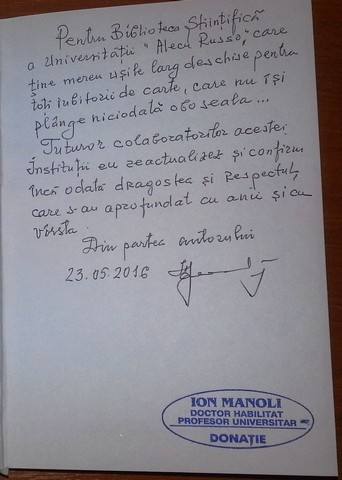 Pentru Biblioteca Științifică
a Universității "Alecu Russo", care
ține mereu ușile larg deschise pentru
toți iubitorii de carte, care nu își
plânge niciodată oboseala...
Tuturor colaboratorilor acestei
Instituții eu reactualizez și confirm
încă odată dragostea și respectul,
care s-au aprofundat cu anii și cu
vîrsta.
Din partea autorului
23.05.2016
ION MANOLI
DOCTOR HABILITAT
PROFESOR UNIVERSITAR
DONAȚIE